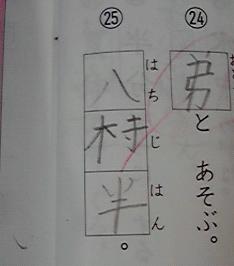 ㉔
と あそぶ。
㉕
はち じ はん
八 半。